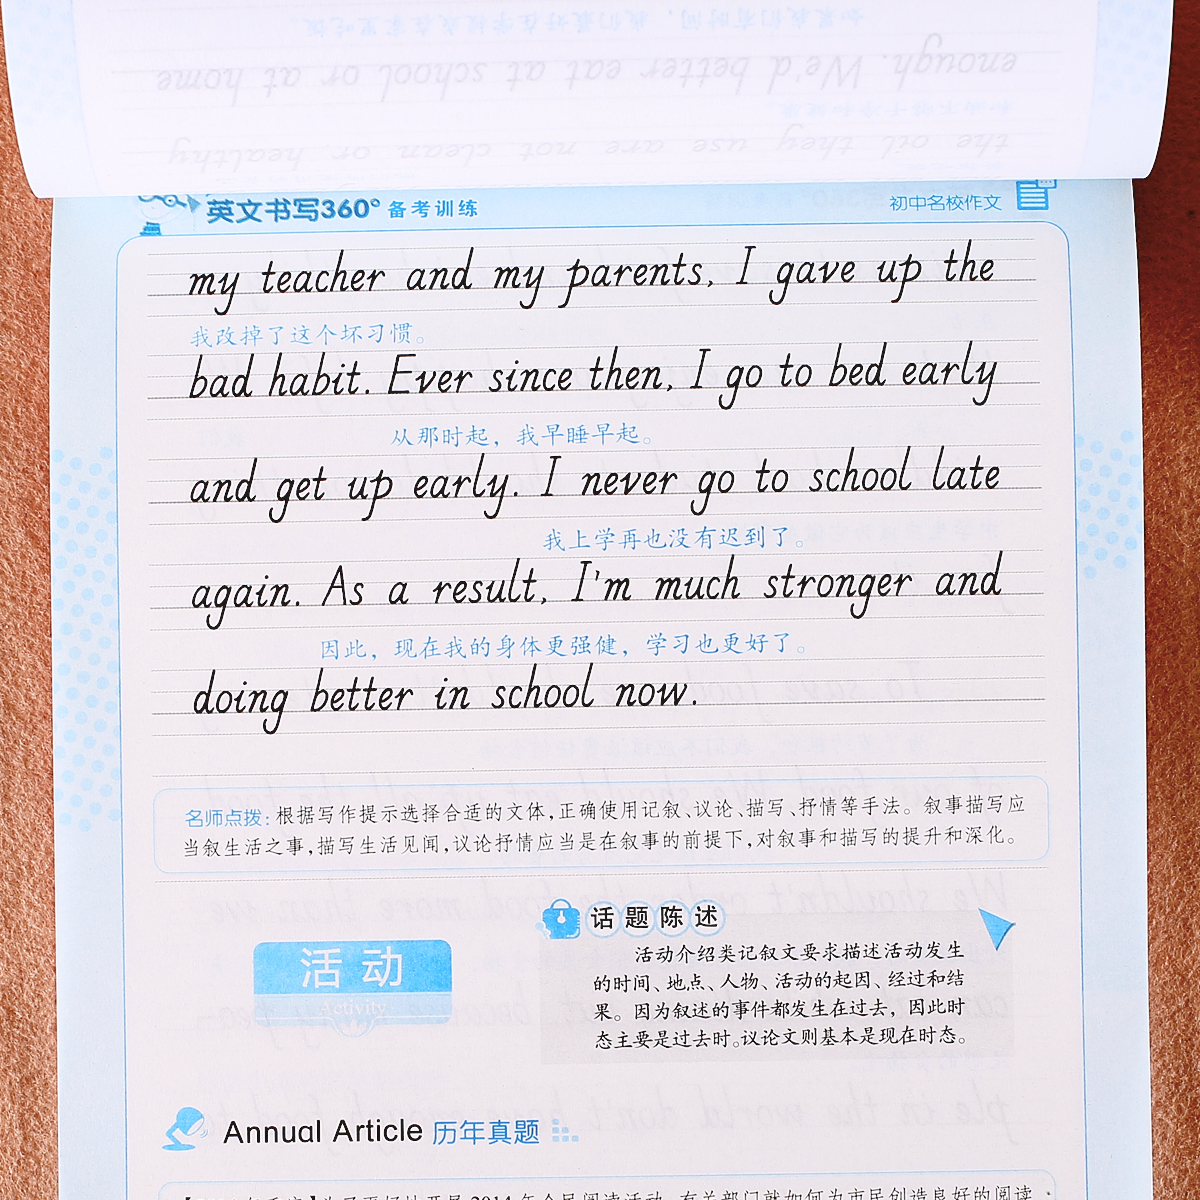 如果我们有时间，我们最好在学校或在家里吃饭
enough. We'd better eat at school or at home
the oil they use are not clean or healthy
英文书写360° 备考训练
初中名校作文
my teacher and my parents, I gave up the
我改掉了这个坏习惯。
bad habit. Ever since then, I go to bed early
从那时起，我早睡早起。
and get up early. I never go to school late
我上学再也没有迟到了。
again. As a result, I'm much stronger and
因此，现在我的身体更强健，学习也更好了。
doing better in school now.
名师点拨:根据写作提示选择合适的文体,正确使用记叙、议论、描写、抒情等手法。叙事描写应
当叙生活之事,描写生活见闻,议论抒情应当是在叙事的前提下,对叙事和描写的提升和深化。
活动
Activity
话题陈述
活动介绍类记叙文要求描述活动发生
的时间、地点、人物、活动的起因、经过和结
果。因为叙述的事件都发生在过去，因此时
态主要是过去时。议论文则基本是现在时态。
Annual Article 历年真题
为了更好地开展2014年全民阅读活动，有关部门就如何为市民创造良好的阅读